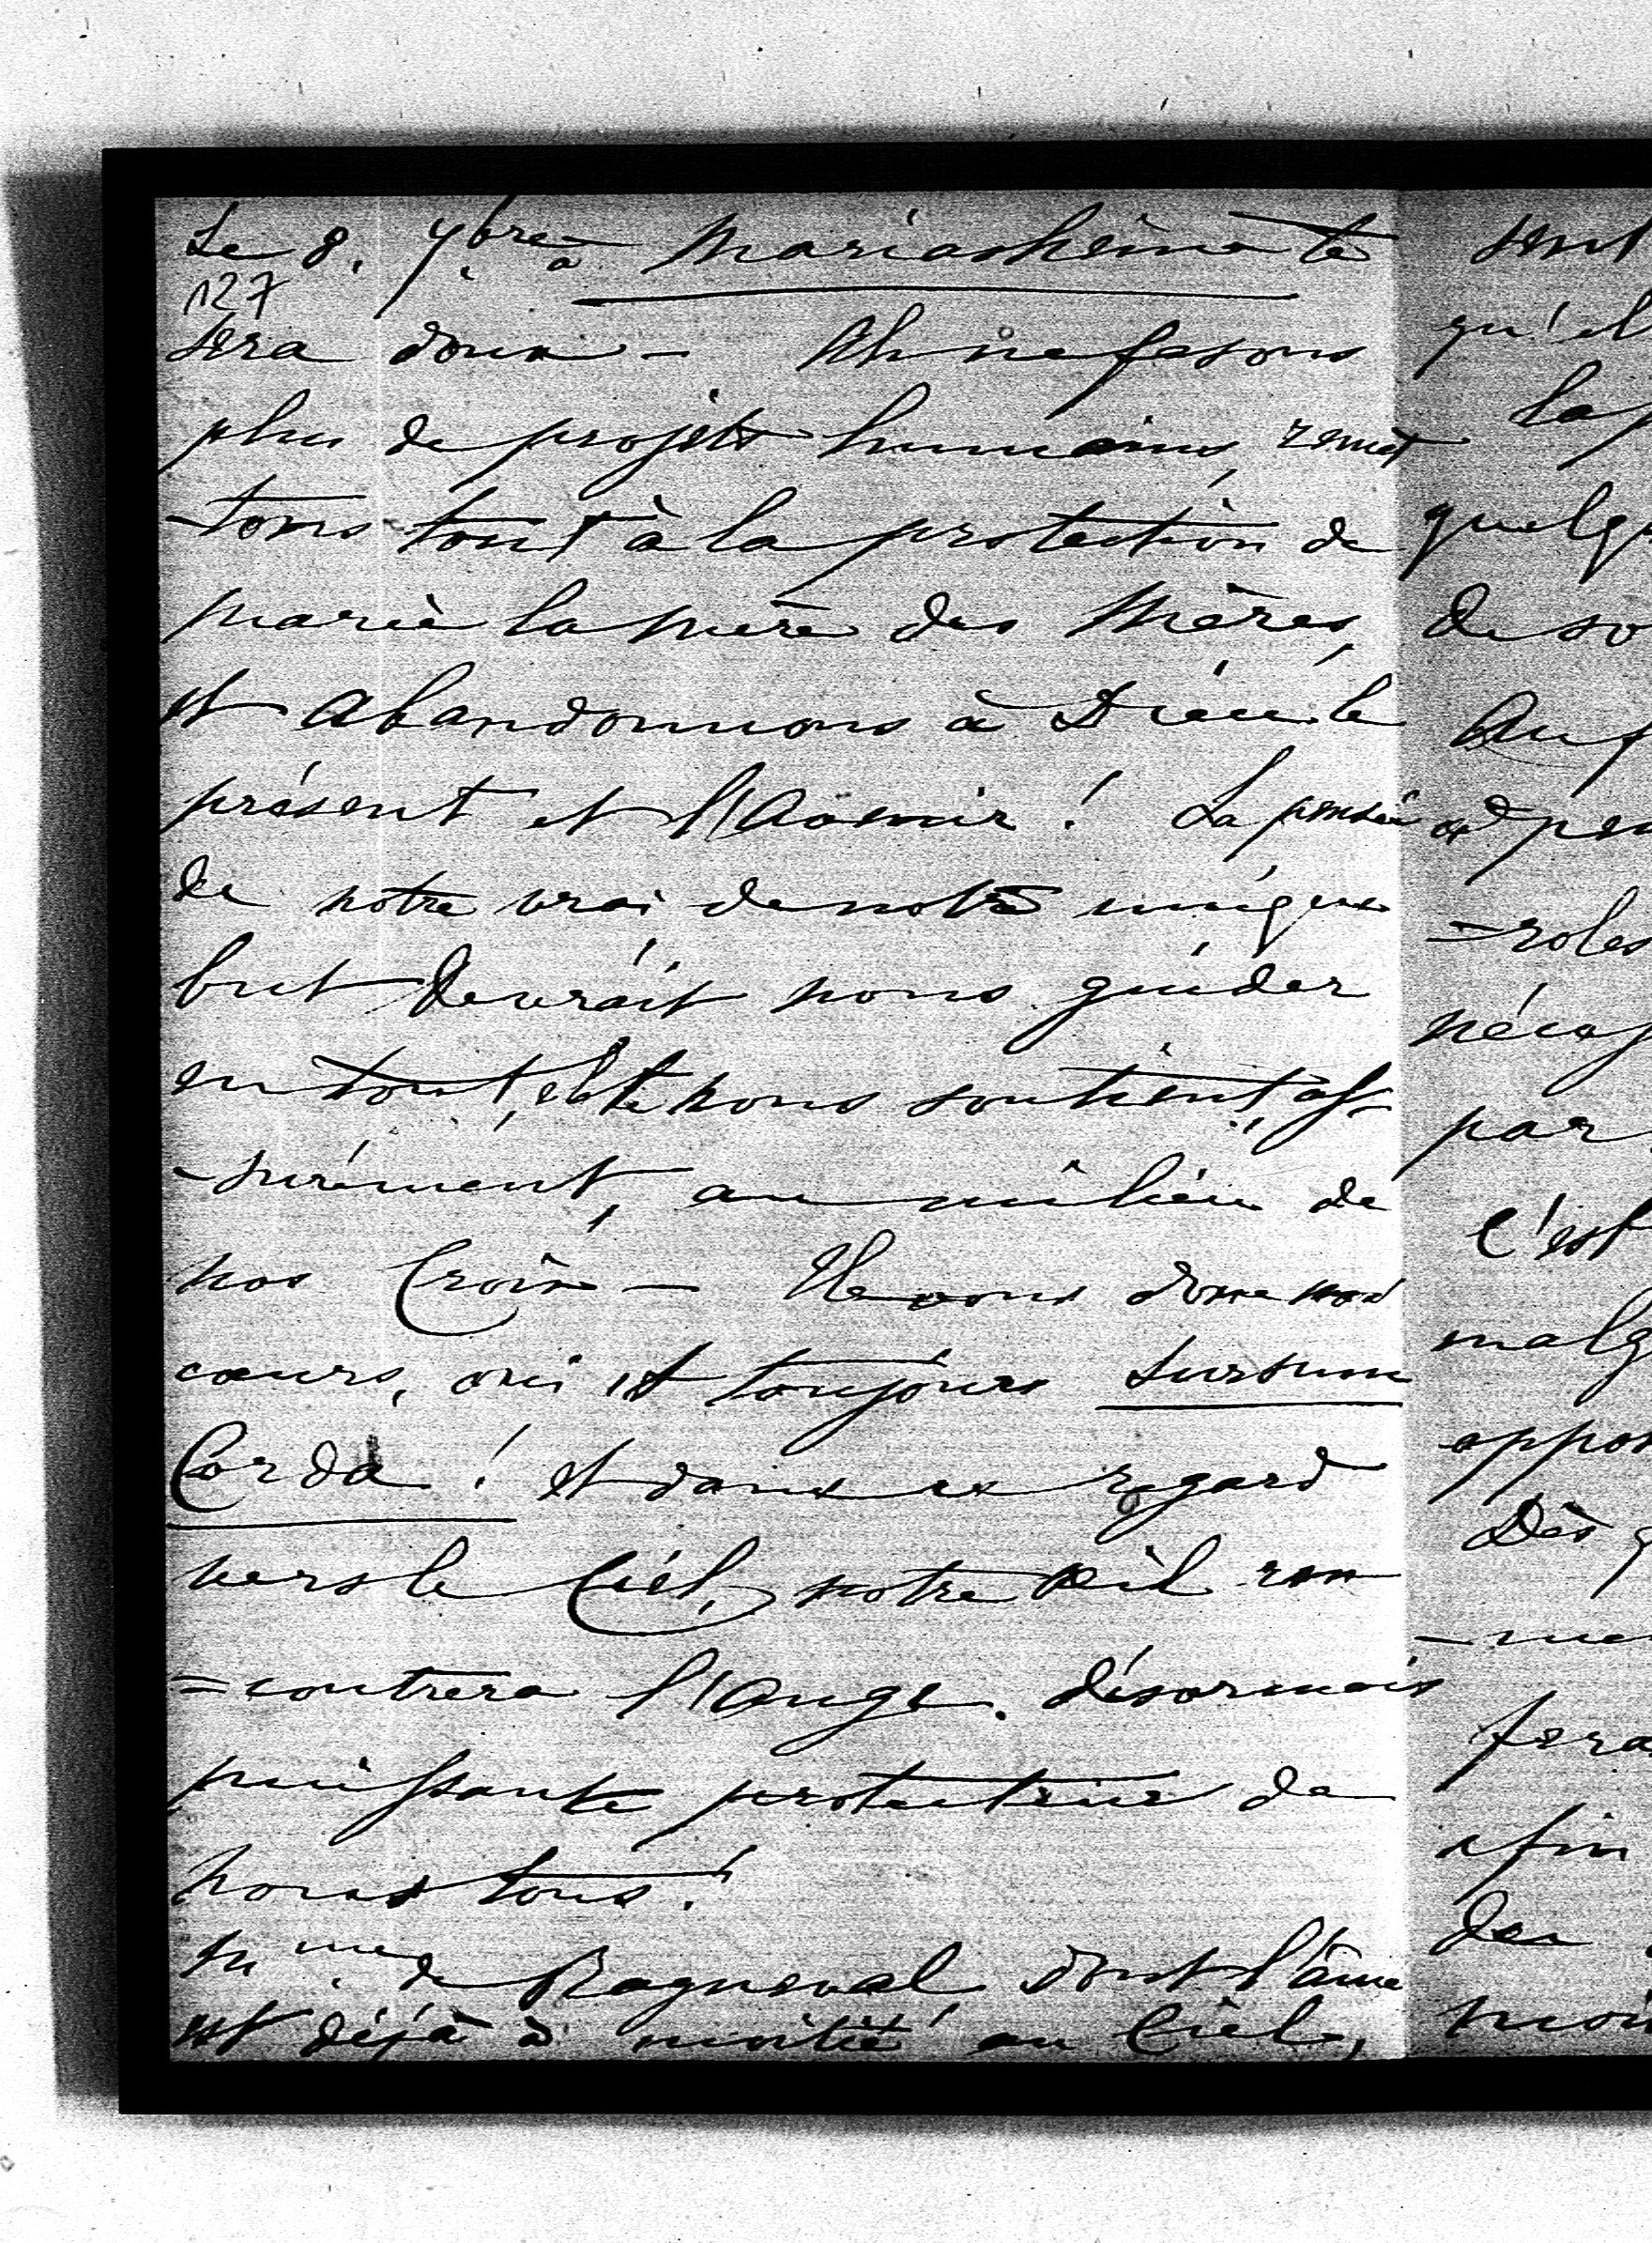 Le 8. 7bre à Mariasheim te
127
sera doux – Ah ne fesons
plus de projets humains, remet
-tons tout à la protection de
Marie la mère des Mères,
et abandonnons à Dieu le
présent et l'Avenir! La pensée
de notre vrai de notre unique
but devrait nous guider
en tout, elle nous soutient, as-
-surément, au milieu de
nos Croix – Elevons donc nos
cœurs, oui et toujours Sursum
Corda! et dans ce regard
vers le Ciel, notre œil ren
=contrera l'Ange. désormais
puissante protectrice de
nous tous!
Mme de Ragueval dont l'âme
est déjà à moitié au Ciel,
sent
qu'el
la p
quelqu
de so
Au f
-roles
par
C'est
malg
oppos
Dès q
-me
fera
afin
des